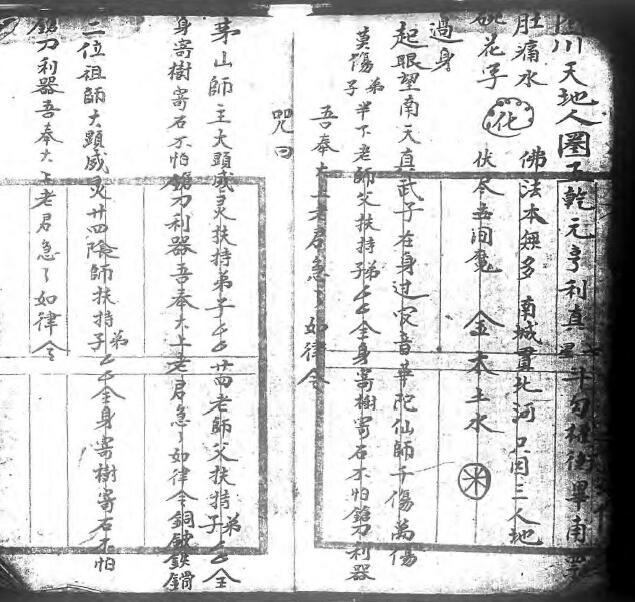 川天地人圈子乾元亨利真
肚痛水　佛法本無多　南城貫北河　只因三人地
桃花字　化　伏尽世间魔　金木土水
過身
起眼望南天真武子在身过　音華陀仙師千傷萬傷
莫傷弟子半下老師父扶持弟子厶厶全身寄樹寄石不怕鎗刀利器
吾奉太上老君急〻如律令
咒曰
茅山師主大顕威灵扶持弟子厶厶廿四老師父扶持弟子厶厶全
身寄樹寄石不怕鎗刀利器吾奉太上老君急〻如律令銅鐵
二位祖師大顕威灵廿四陰師扶持弟子厶厶全身寄樹寄石不怕
鎗刀利器吾奉太上老君急〻如律令